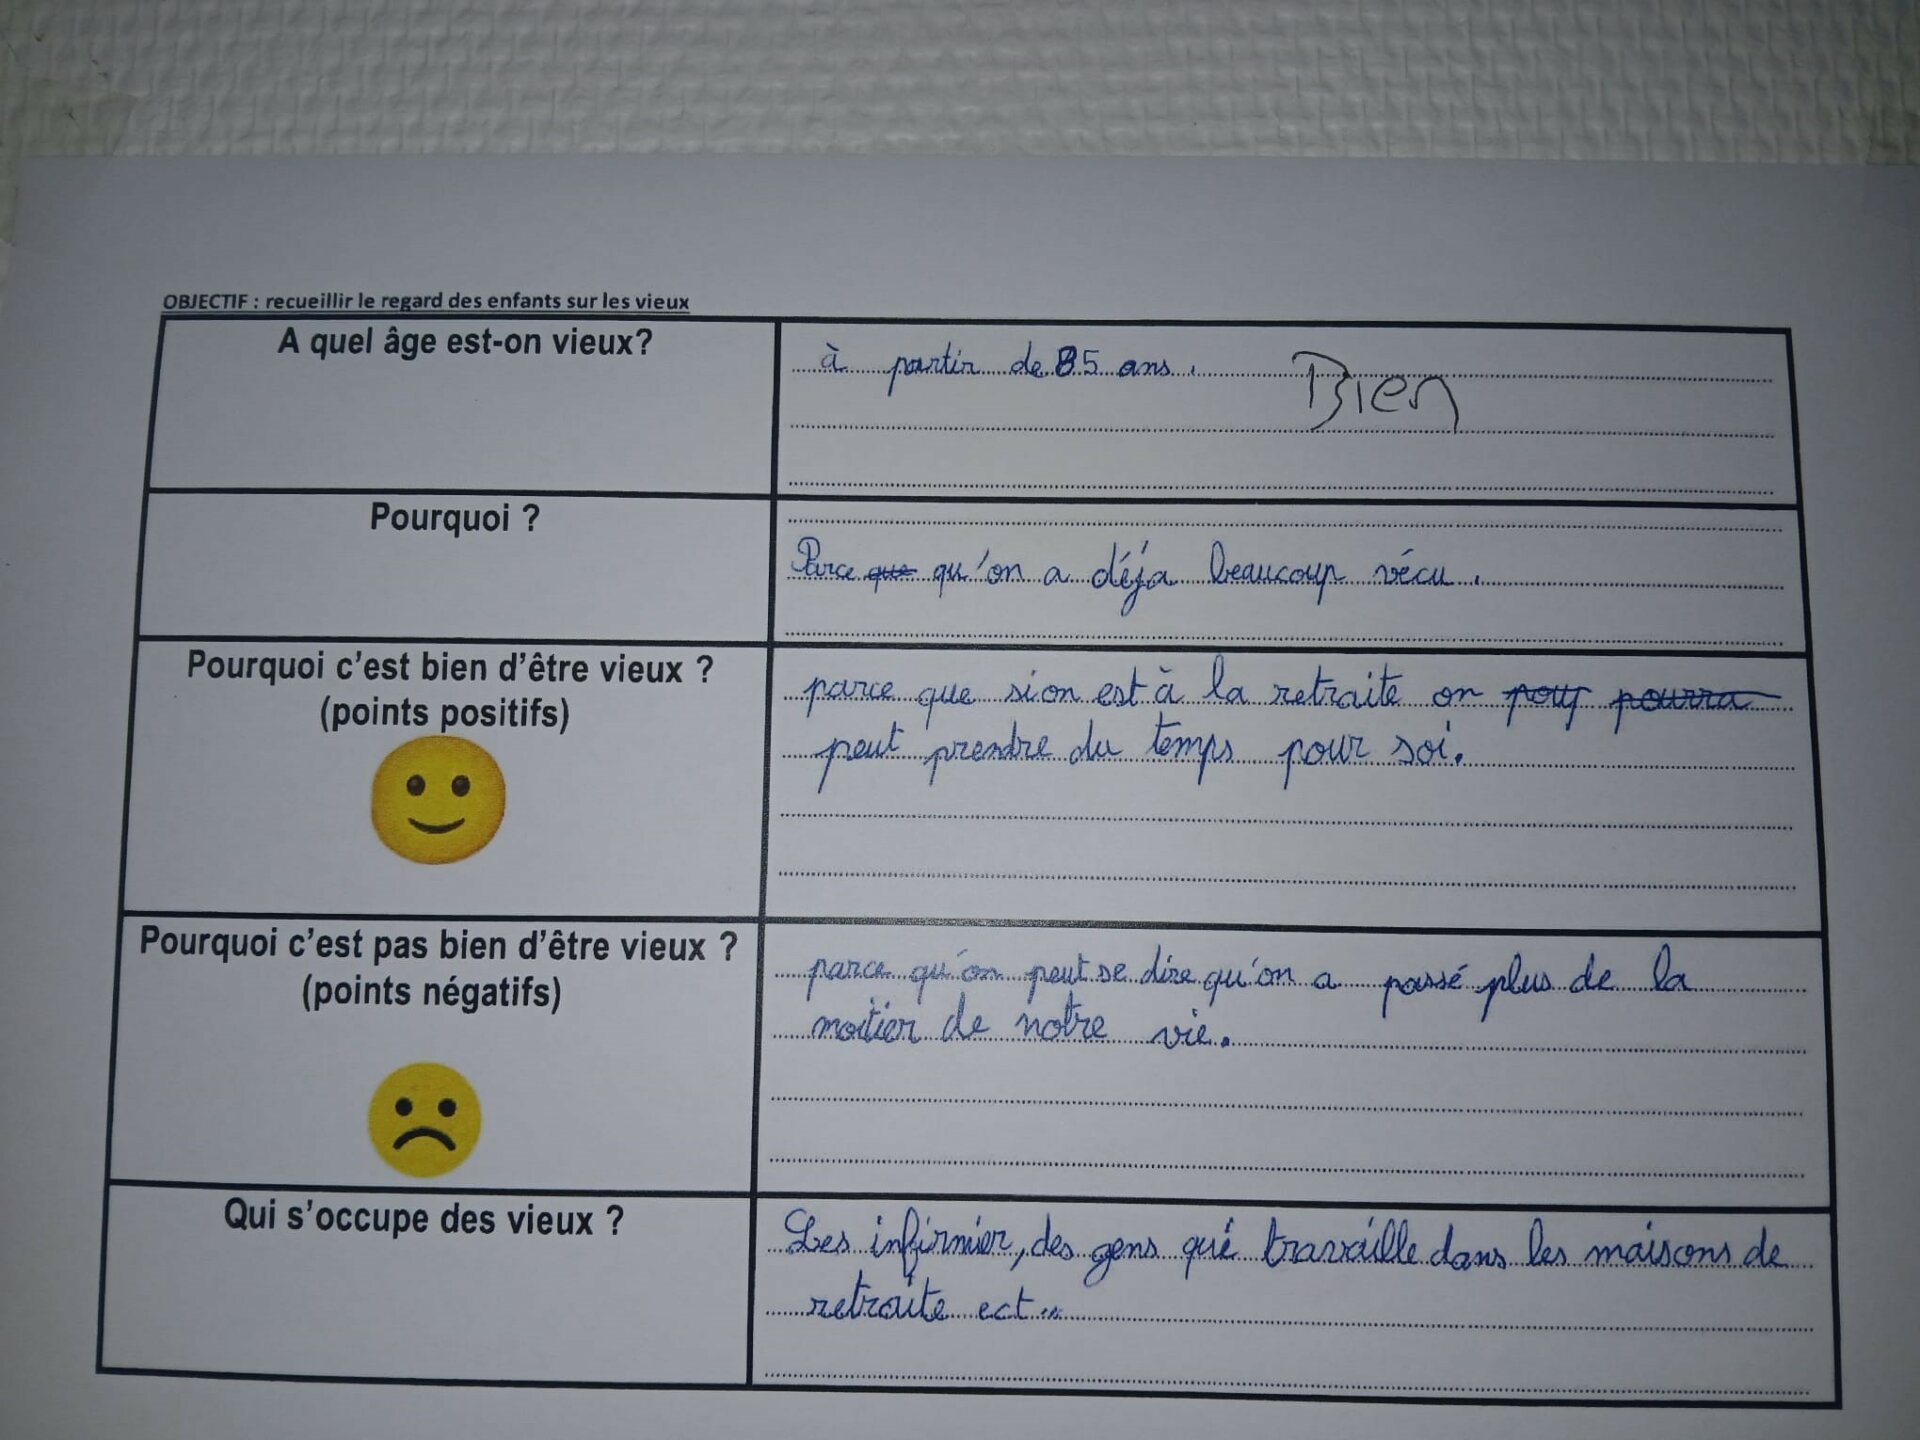 OBJECTIF : recueillir le regard des enfants sur les vieux
A quel âge est-on vieux?
à partir de 85 ans.
Bien
Pourquoi ?
Parce que qu'on a déja beaucoup vécu.
Pourquoi c'est bien d'être vieux ?
(points positifs)
parce que si on est à la retraite on pourra
peut prendre du temps pour soi.
Pourquoi c'est pas bien d'être vieux ?
(points négatifs)
parce qu'on peut se dire qu'on a passé plus de la
moitier de notre vie.
Qui s'occupe des vieux ?
Les infirmier, des gens qui travaille dans les maisons de
retraite ect...